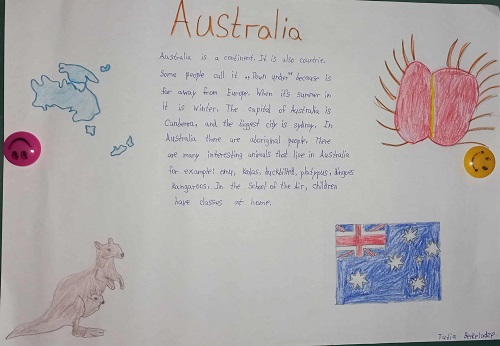 Australia
Australia is a continent. It is also countrie.
Some people call it „Down under" because is
far away from Europe. When it's summer in
it is winter. The capital of Australia is
Canberra, and the biggest city is sydney. In
Australia there are aboriginal people. There
are many interesting animals that live in Australia
for example: emu, koalas, duckbilled, platypus, dingoes
kangaroos. In the School of the Air, children
have classes at home.